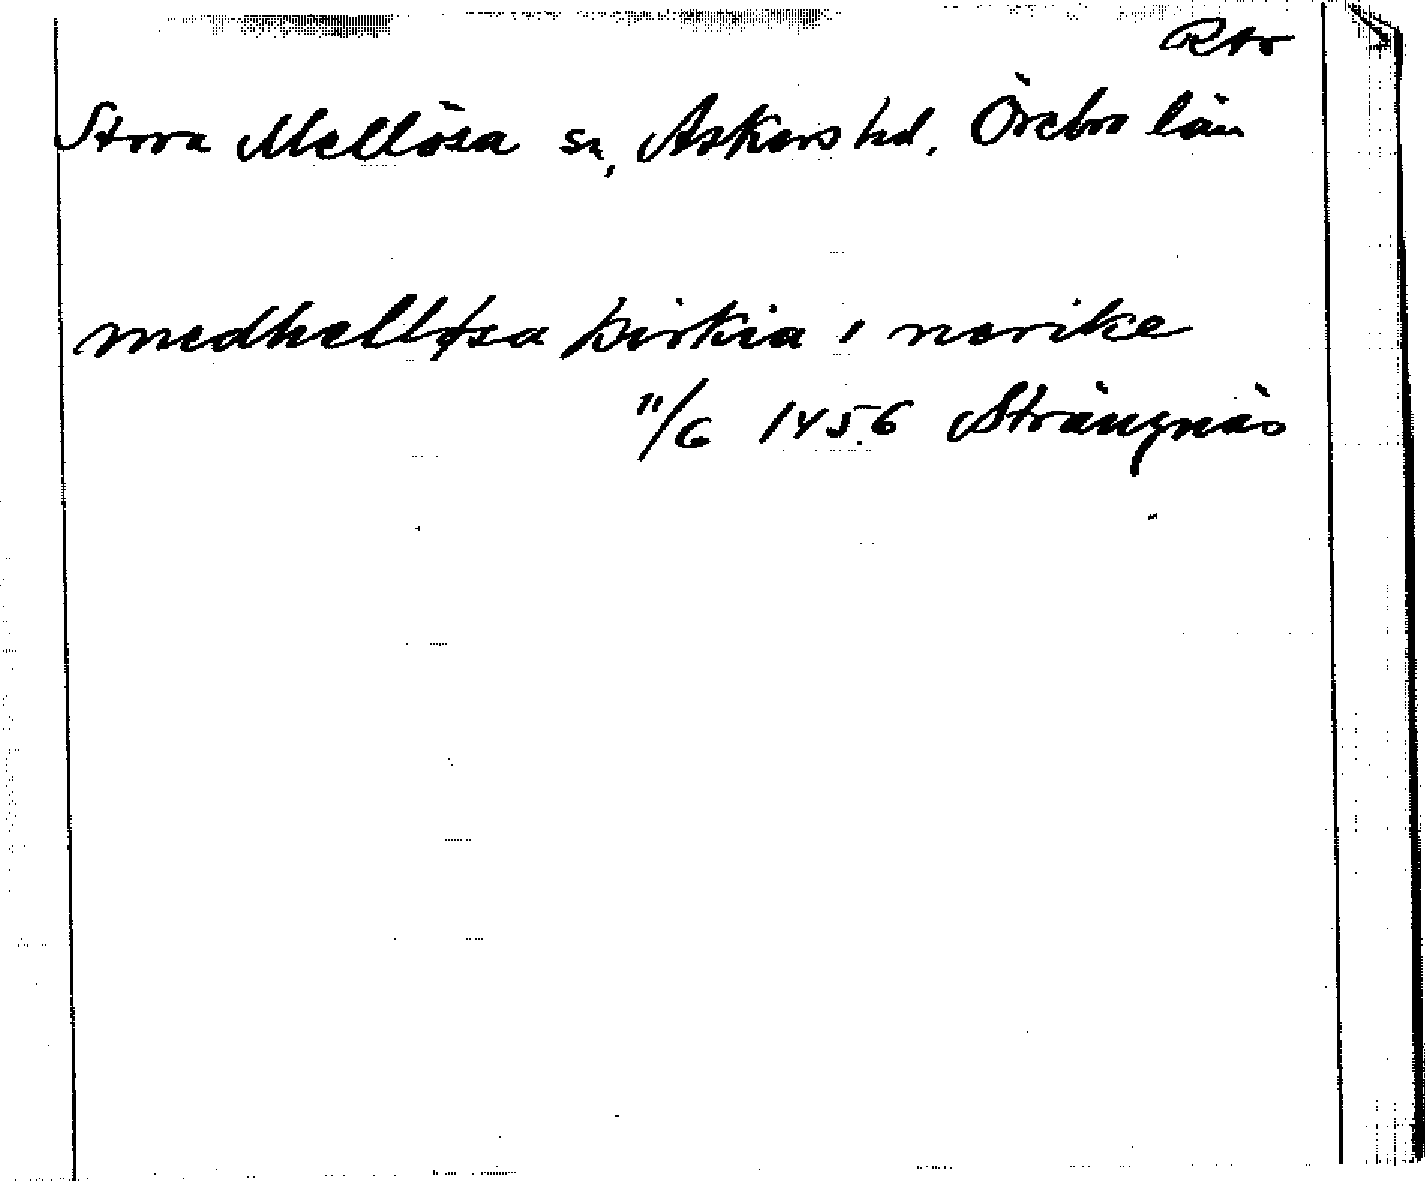 RAv
Stora Mellösa sn, Askers hd, Örebro län
medhelløsa kirkia i nerike
11/6 1456 Strängnäs